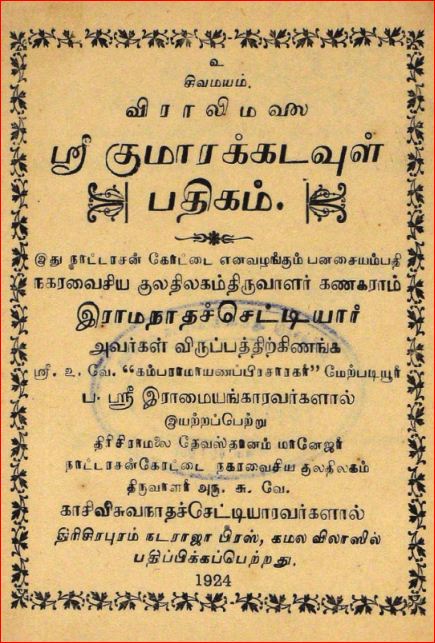 உ
சிவமயம்.
விராலிமலை
ஸ்ரீ குமாரக்கடவுள்
பதிகம்.
இது நாட்டரசன் கோட்டை எனவழங்கும் பனசையம்பதி
நகரவைசிய குலதிலகம்திருவாளர் கணகராம்
இராமநாதச்செட்டியார்
அவர்கள் விருப்பத்திற்கிணங்க
ஸ்ரீ. உ. வே. “கம்பராமாயணப்பிரசாரகர்” மேற்படியூர்
ப. ஸ்ரீ இராமையங்காரவர்களால்
இயற்றப்பெற்று
திரிசிராமலை தேவஸ்தானம் மானேஜர்
நாட்டரசன்கோட்டை நகரவைசிய குலதிலகம்
திருவாளர் அரு. சு. வே.
காசிவிசுவநாதச்செட்டியாரவர்களால்
திரிசிரபுரம் நடராஜா பிரஸ், கமல விலாஸில்
பதிப்பிக்கப்பெற்றது.
1924